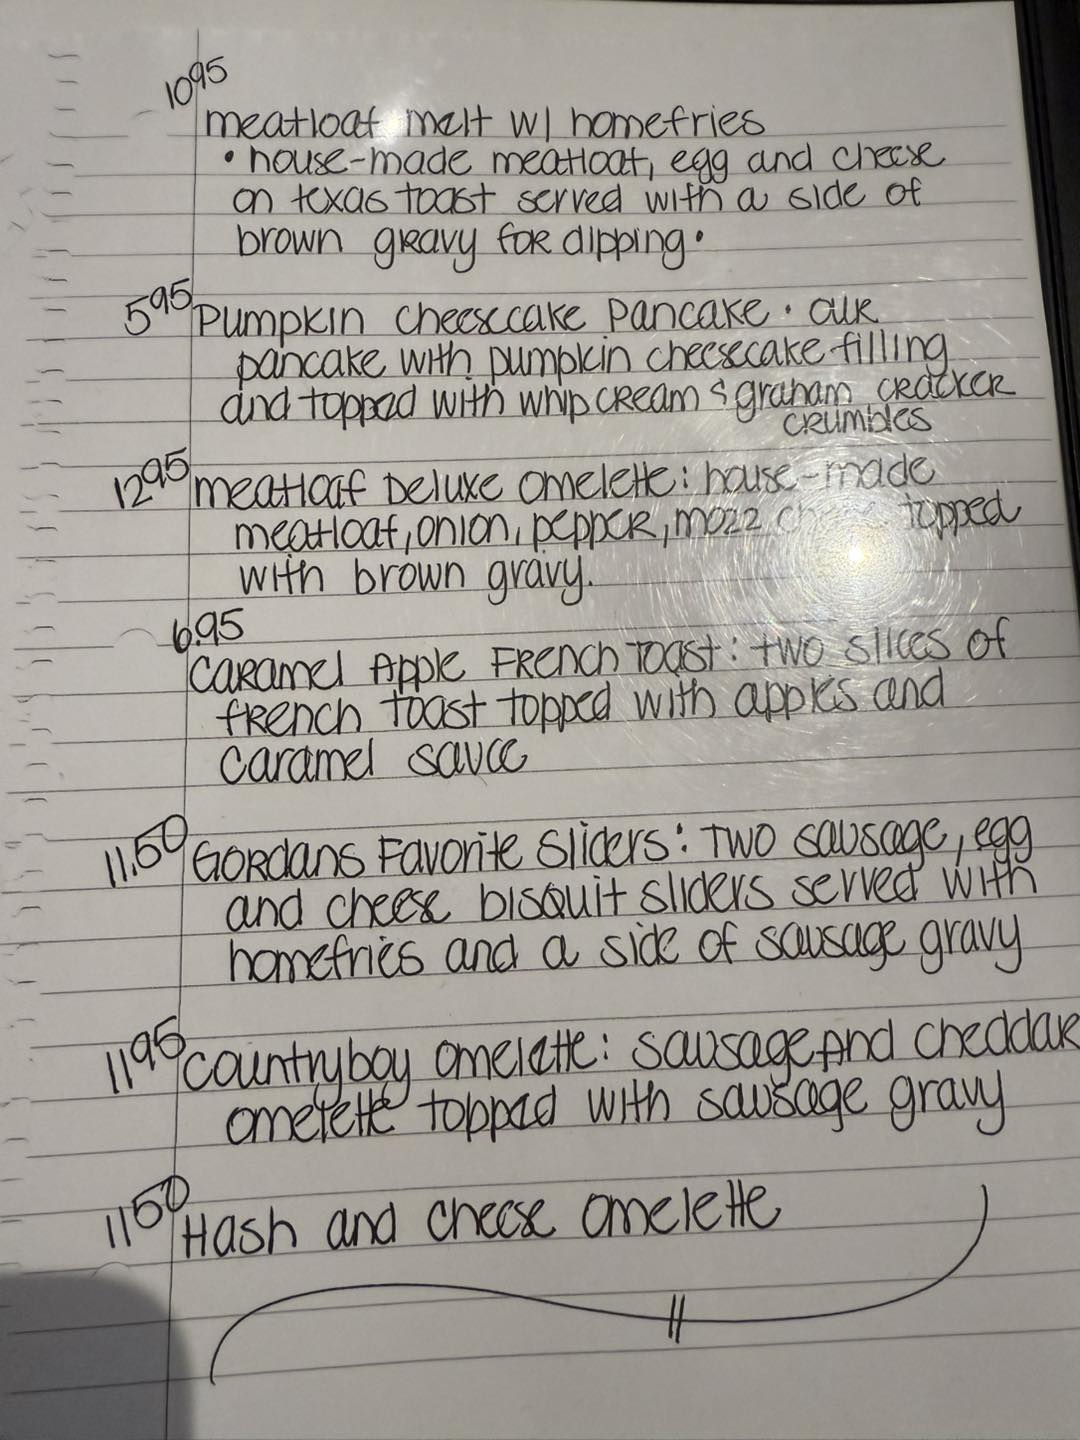 1095
meatloaf melt w/ homefries
• house-made meatloaf, egg and cheese
on texas toast served with a side of
brown gravy for dipping •
5 95 Pumpkin cheesecake Pancake • our
pancake with pumpkin cheesecake filling
and topped with whip cream & graham cracker
crumbles
12 95 meatloaf Deluxe omelette: house-made
meatloaf, onion, pepper, mozz topped
with brown gravy.
6.95
Caramel Apple French Toast: two slices of
french toast topped with apples and
caramel sauce
11.50 Gordans Favorite Sliders: Two sausage, egg
and cheese bisquit sliders served with
homefries and a side of sausage gravy
11 95 Countryboy omelette: sausage and cheddar
omelette topped with sausage gravy
11 50 Hash and cheese omelette